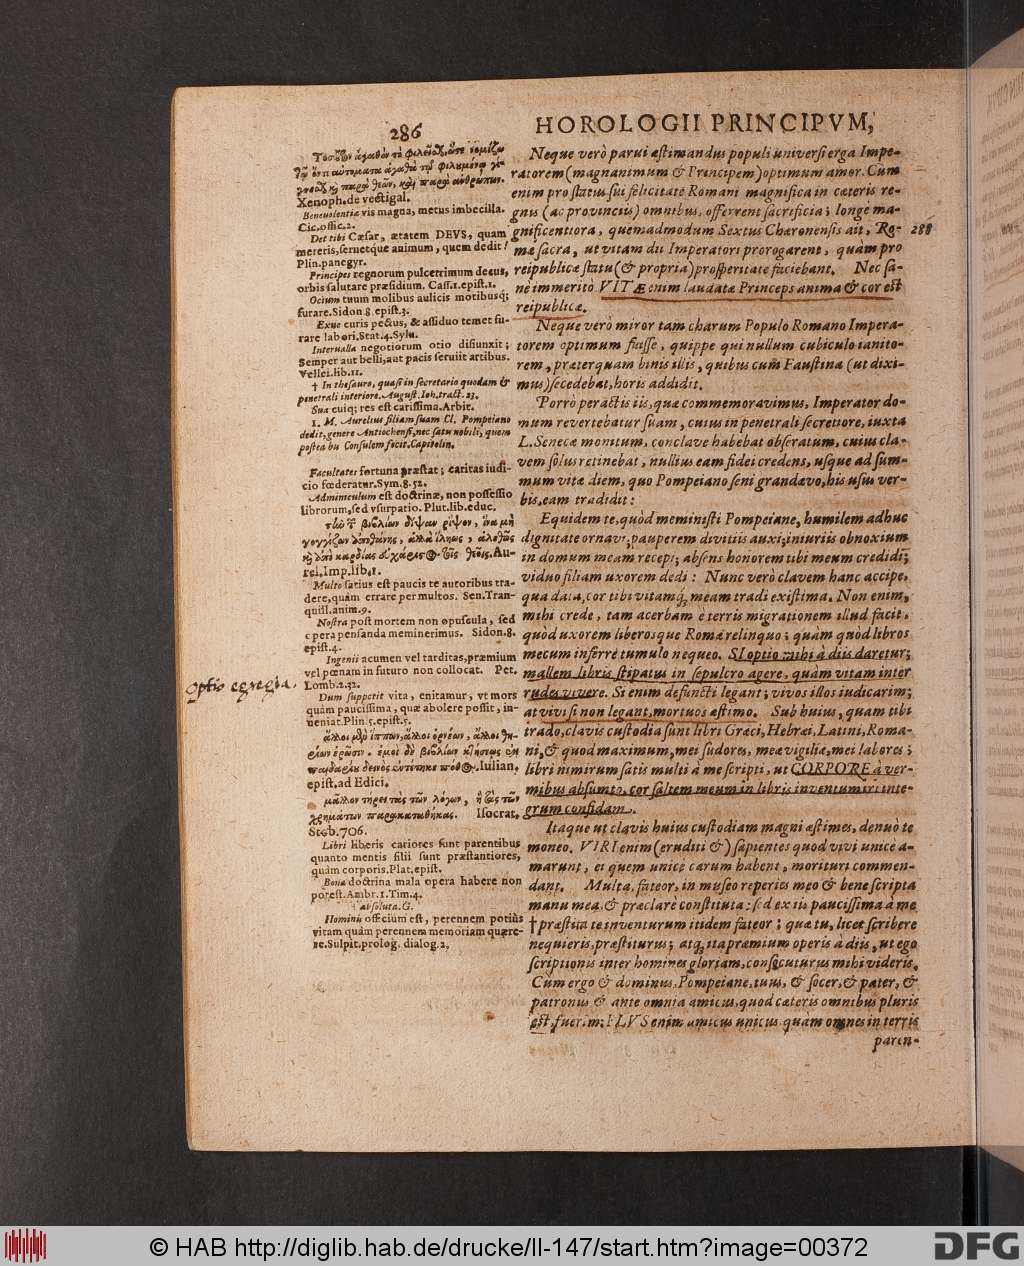 286
HOROLOGII PRINCIPVM,
Xenoph. de vectigal.
Benevolentia vis magna, metus imbecilla.
Cic. offic. 2.
Det tibi Cæsar, ætatem DEVS, quam
meteris, seruetque animum, quem dedit!
Plin. panegyr.
Principes regnorum pulcetrimum decus,
orbis salutare præsidium. Cass. 1. epist. 1.
Ocium tuum molibus aulicis motibusq;
furare. Sidon. 8. epist. 3.
Exue curis pectus, & assiduo temet fu-
rare labori. Stat. 4. Sylu.
Interualla negotiorum otio disiunxit;
Semper aut belli, aut pacis seruiit artibus.
Vellei. lib. 11.
† In thesauro, quasi in secretario quodam &
penetrali interiore. August. Ioh. tract. 23.
Sua cuiq; res est carissima. Arbit.
1. M. Aurelius filiam suam Cl. Pompeiano
dedit, genere Antiochensi, nec satu nobili, quem
postea bis Consulem fecit. Capitolin.
Facultates fortuna præstat; caritas iudi-
cio fœderatur. Sym. 8. 52.
Adminiculum est doctrinæ, non possessio
librorum, sed vsurpatio. Plut. lib. educ.
τὴν τ βιβλίων δίψαν ῥίψον, ἵνα μὴ
γογγίζων ἀποθάνῃς, ἀλλὰ ἵλεως, ἀληθῶς
καὶ ἀπὸ καρδίας εὐχάριστος τοῖς θεοῖς. Au-
rel. Imp. lib. 1.
Multo satius est paucis te autoribus tra-
dere, quàm errare per multos. Sen. Tran-
quill. anim. 9.
Nostra post mortem non opuscula, sed
opera pensanda meminerimus. Sidon. 8.
epist. 4.
Ingenii acumen vel tarditas, præmium
vel pœnam in futuro non collocat. Pet.
Lomb. 2. 32.
Dum suppetit vita, enitamur, vt mors
quàm paucissima, quæ abolere possit, in-
ueniat. Plin. 5. epist. 5.
ἄλλοι μὲν ἵππων, ἄλλοι ὀρνέων, ἄλλοι θη-
ρίων ἐρῶσιν. ἐμοὶ δὲ βιβλίων κτήσεως ἐκ
παιδαρίου δεινὸς ἐντέτηκε πόθος. Iulian.
epist. ad Edici.
μᾶλλον τήρει τὰς τῶν λόγων, ἢ τὰς τῶν
χρημάτων παρακαταθήκας. Isocrat.
Stob. 706.
Libri liberis cariores sunt parentibus
quanto mentis filii sunt præstantiores,
quàm corporis. Plat. epist.
Bona doctrina mala opera habere non
potest. Ambr. 1. Tim. 4.
† absoluta. G.
Hominis officium est, perennem potiùs
vitam quàm perennem memoriam quære-
re. Sulpit. prolog. dialog. 2.
Optio egregia.
Neque verò parui æstimandus populi universi erga Impe-
ratorem (magnanimum & Principem) optimum amor. Cum
enim pro statu sui felicitate Romani magnifica in cæteris re-
gnis (ac provinciis) omnibus, offerrent sacrificia; longè ma-
gnificentiora, quemadmodum Sextus Charonensis ait, Ro-
mæ sacra, ut vitam dii Imperatori prorogarent, quàm pro
reipublicæ statu (& propria) prosperitate faciebant. Nec sa-
nè immeritò. VITÆ enim laudatæ Princeps anima & cor est
reipublicæ.
288
Neque verò miror tam charum Populo Romano Impera-
torem optimum fuisse, quippe qui nullum cubiculo ianito-
rem, præterquam binis illis, quibus cum Faustina (ut dixi-
mus) secedebat, horis addidit.
Porrò peractis iis, quæ commemoravimus, Imperator do-
mum revertebatur suam, cuius in penetrali secretiore, iuxta
L. Senecæ monitum, conclave habebat obseratum, cuius cla-
vem solus retinebat, nullius eam fidei credens, usque ad sum-
mum vitæ diem, quo Pompeiano seni grandævo, his usus ver-
bis, eam tradidit:
Equidem te, quòd meministi Pompeiane, humilem adhuc
dignitate ornavi; pauperem divitiis auxi; iniuriis obnoxium
in domum meam recepi; absens honorem tibi meum credidi;
viduo filiam uxorem dedi: Nunc verò clavem hanc accipe,
qua data, cor tibi vitamq; meam tradi existima. Non enim,
mihi crede, tam acerbam è terris migrationem illud facit,
quòd uxorem liberosque Romæ relinquo; quàm quòd libros
mecum inferre tumulo nequeo. SI optio mihi à diis daretur;
mallem libris stipatus in sepulcro agere, quàm vitam inter
rudes vivere. Si enim defuncti legant; vivos illos iudicarim;
at vivi si non legant, mortuos æstimo. Sub huius, quam tibi
trado, clavis custodia sunt libri Græci, Hebræi, Latini, Roma-
ni, & quod maximum, mei sudores, meæ vigiliæ, mei labores;
libri nimirum satis multi à me scripti, ut CORPORE à ver-
mibus absumto, cor saltem meum in libris inventum iri inte-
grum confidam.
Itaque ut clavis huius custodiam magni æstimes, denuò te
moneo. VIRI enim (eruditi &) sapientes quod vivi unicè a-
marunt, ei quem unicè carum habent, morituri commen-
dant. Multa, fateor, in museo reperies meo & bene scripta
manu mea, & præclarè constituta: sed ex iis paucissima à me
† præstita te inventurum itidem fateor; quæ tu, licet scribere
nequieris, præstiturus; atq; ita præmium operis à diis, ut ego
scriptionis inter homines gloriam, consecuturus mihi videris.
Cùm ergo & dominus, Pompeiane, tuus, & socer, & pater, &
patronus & ante omnia amicus, quod cæteris omnibus pluris
est, fuerim; PLVS enim amicus unicus quàm omnes in terris
paren-
© HAB http://diglib.hab.de/drucke/ll-147/start.htm?image=00372
DFG